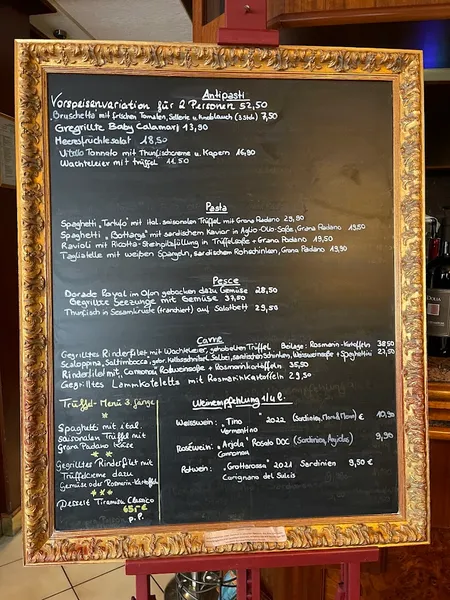 Antipasti
Vorspeisenvariation für 2 Personen 52,50
Bruschetta mit frischen Tomaten, Sellerie u. Knoblauch (3 Stck) 7,50
Gegrillte Baby Calamari 13,90
Meeresfrüchtesalat 18,50
Vitello Tonnato mit Thunfischcreme u. Kapern 16,90
Wachteleier mit trüffel 11.50
Pasta
Spaghetti „Tartufo" mit ital. saisonalen Trüffel mit Grana Padano 29,90
Spaghetti „Bottarga" mit sardischem Kaviar in Aglio-Olio-Soße, Grana Padano 19.50
Ravioli mit Ricotta-Steinpilzfüllung in Trüffelsoße + Grana Padano 19,50
Tagliatelle mit weißen Spargeln, sardischen Rohschinken, Grana Padano 19,90
Pesce
Dorade Royal im Ofen gebacken dazu Gemüse 28,50
Gegrillte Seezunge mit Gemüse 37,50
Thunfisch in Sesamkruste (tranchiert) auf Salatbett 29,50
Carne
Gegrilltes Rinderfilet mit Wachteleier, gehobelten Trüffel Beilage: Rosmarin-Kartoffeln 38,50
Scaloppina, Saltimbocca, gebr. Kalbsschnitzel, Salbei, sardischen Schinken, Weissweinsoße + Spaghettini 27,50
Rinderfilet mit „Cannonau" Rotweinsoße + Rosmarinkartoffeln 35,50
Gegrilltes Lammkoteletts mit Rosmarinkartoffeln 29,50
Trüffel-Menü 3. Gänge
Spaghetti mit ital.
saisonalen Trüffel mit
Grana Padano Käse
Gegrilltes Rinderfilet mit
Trüffelcreme dazu
Gemüse oder Rosmarin-Kartoffeln
Dessert Tiramisu Classico
65,-€
p.P.
Weinempfehlung 1/4 l.
Weisswein: „Tino" 2022 (Sardinien, ) 10,90
Vermentino
Roséwein: „Anjola" Rosato DOC (Sardinien, ) 9,90
Cannonau
Rotwein: „Grotta rossa" 2021 Sardinien 9,50 €
Carignano del Sulcis